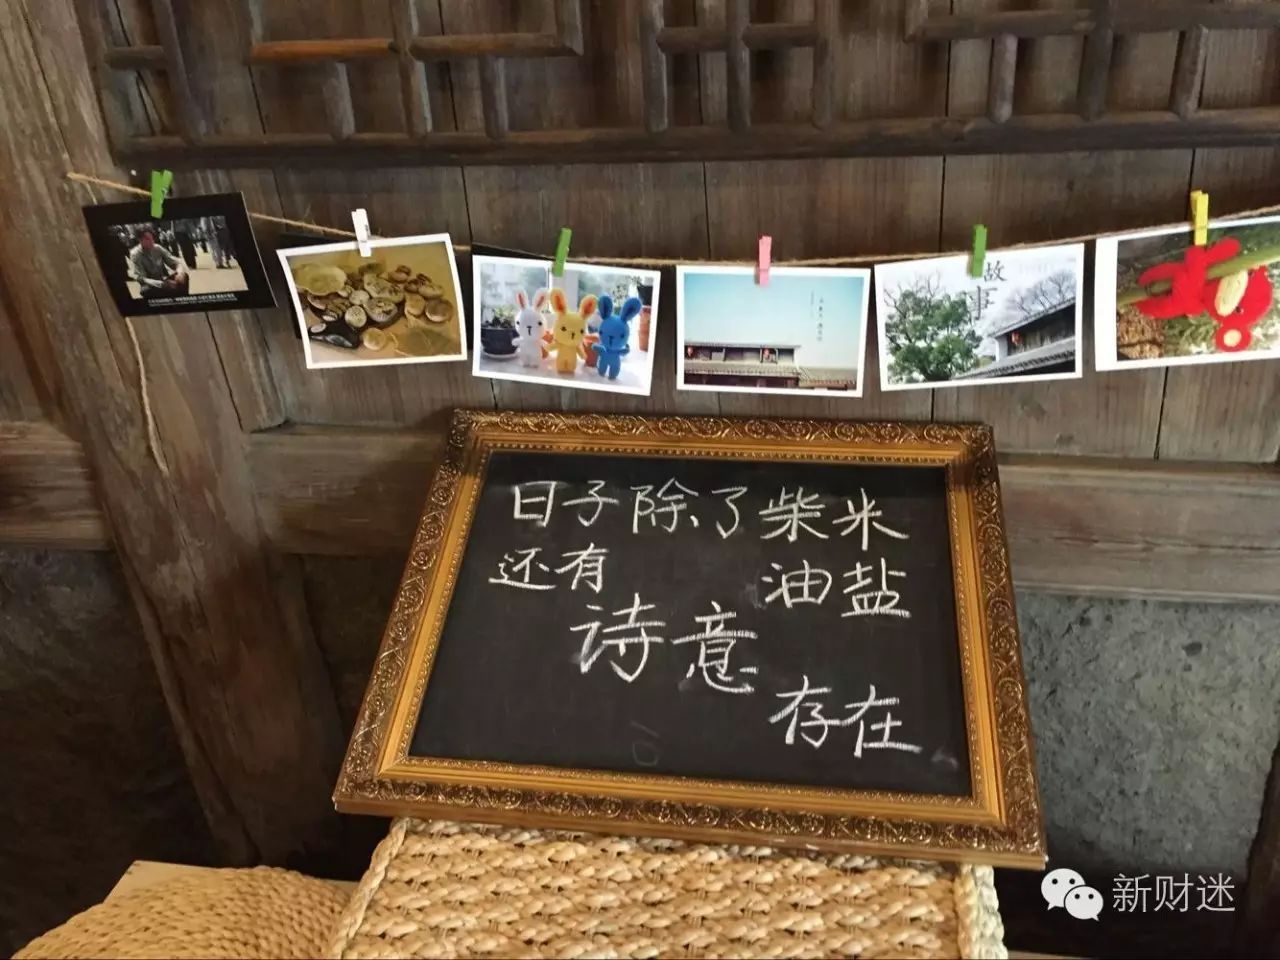 故
事
日子除了柴米
还有 油盐
诗意
存在
新财迷